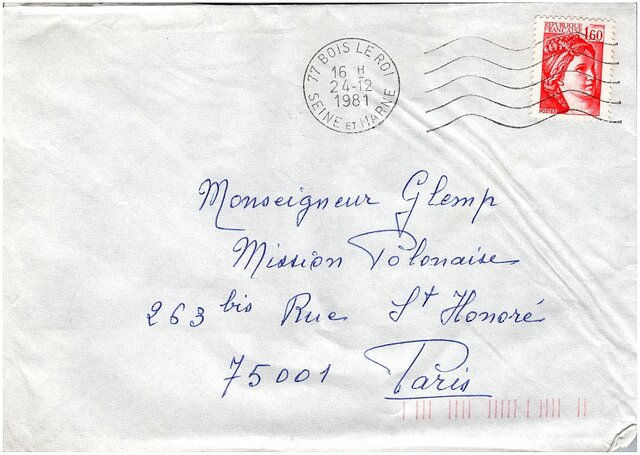 77 BOIS LE ROI
16 H
24-12
1981
SEINE ET MARNE
REPUBLIQUE
FRANCAISE
1,60
POSTES
Monseigneur Glemp
Mission Polonaise
263 bis Rue St Honoré
75001 Paris